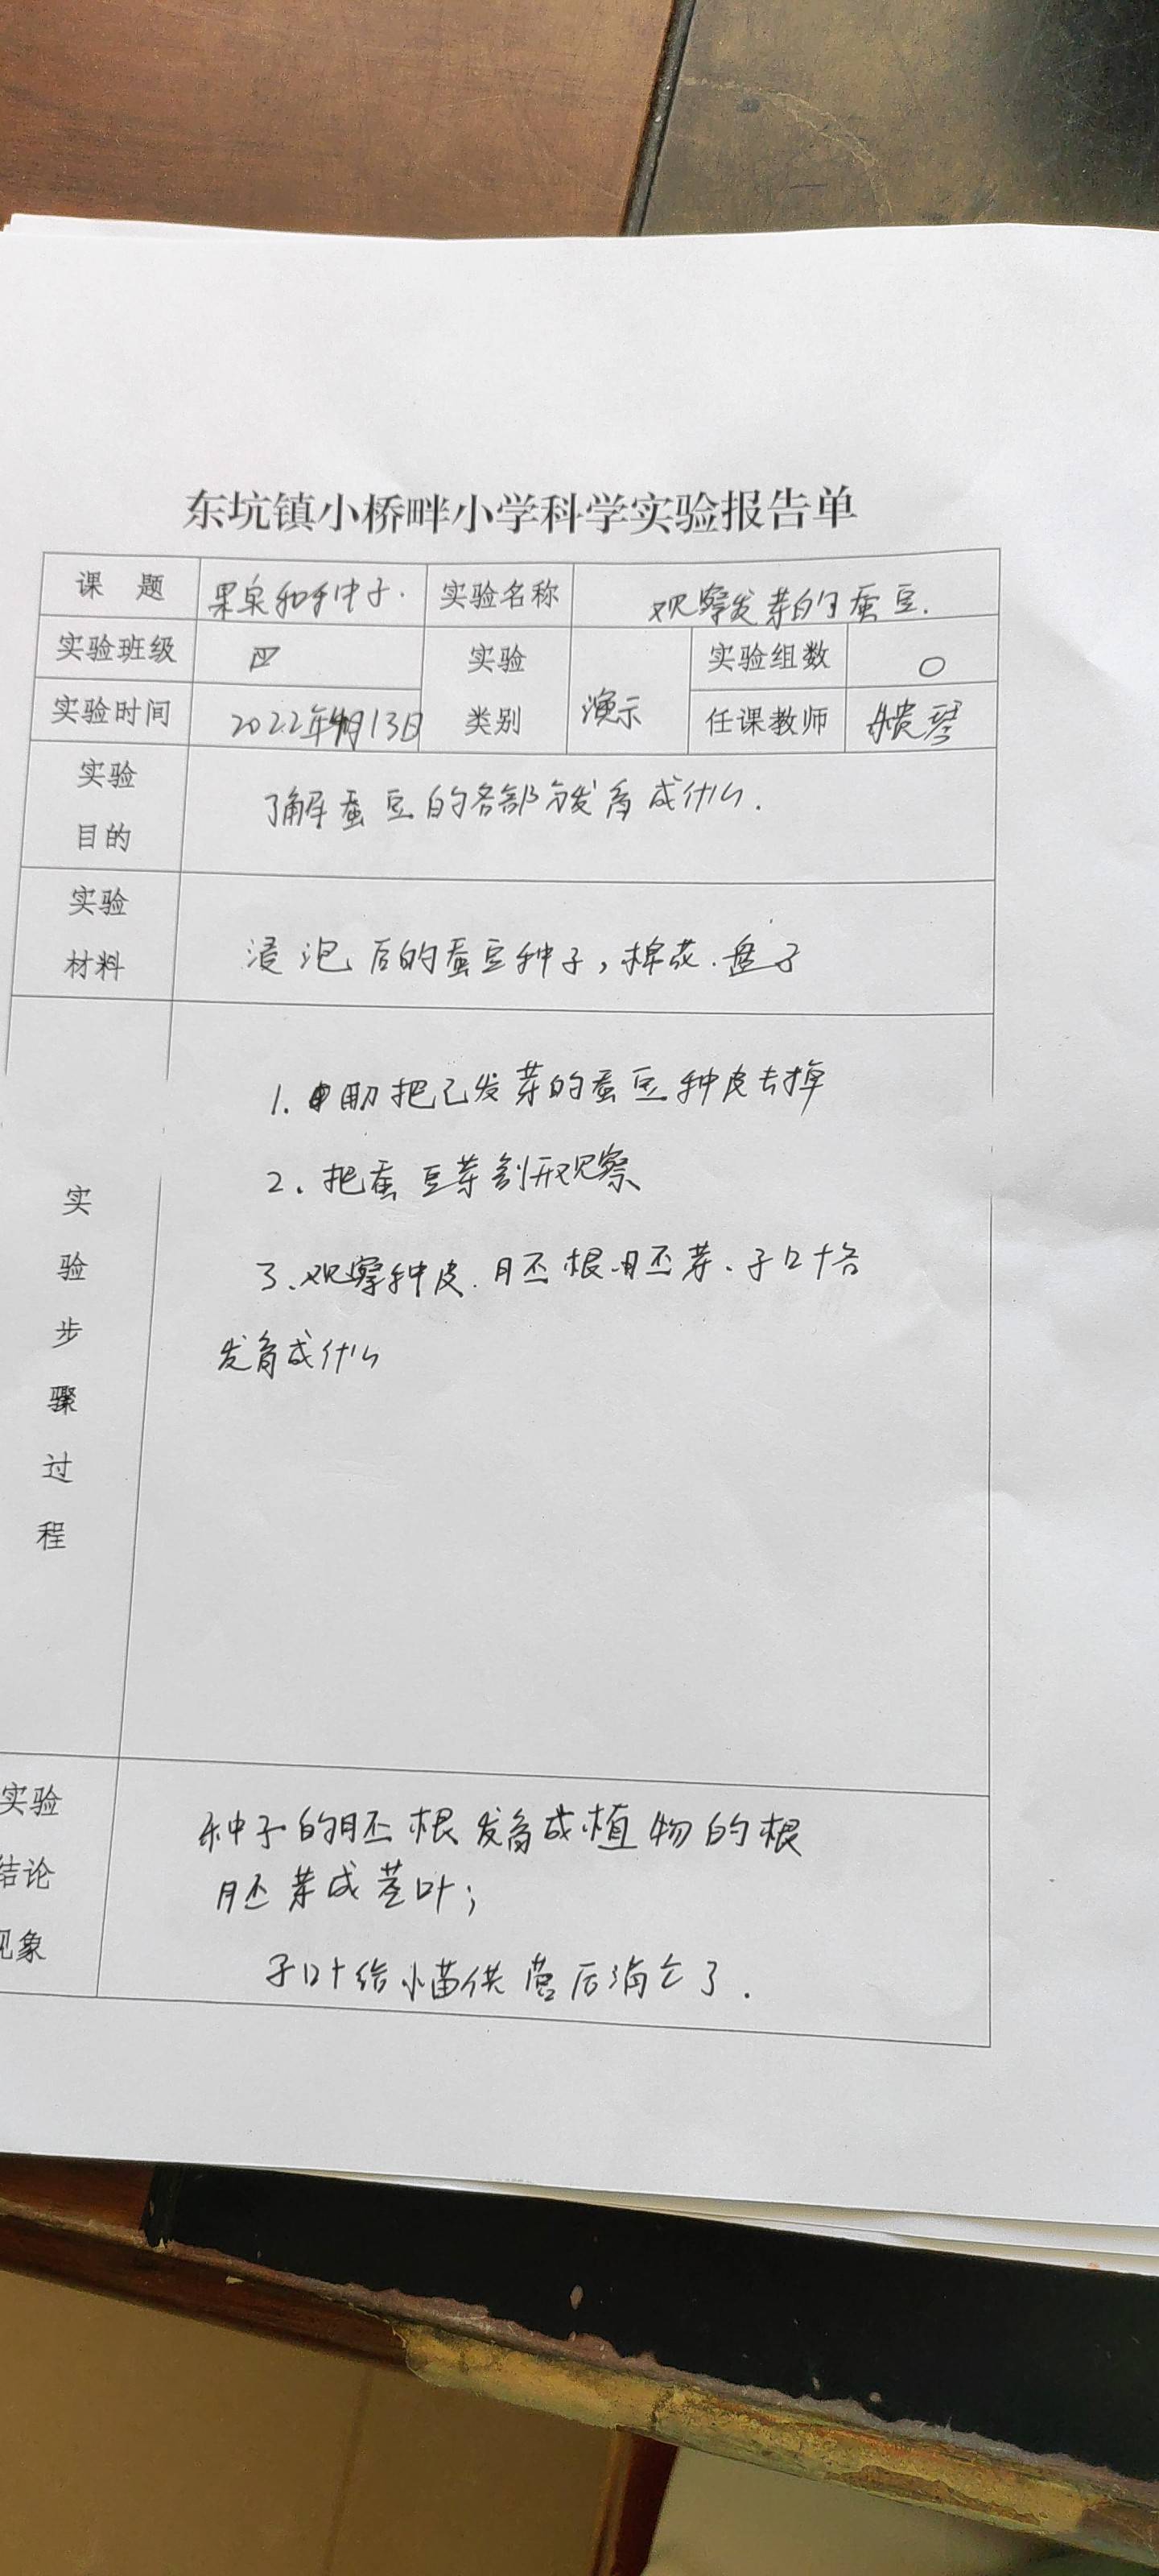 东坑镇小桥畔小学科学实验报告单
课 题 果实和种子. 实验名称 观察发芽的蚕豆.
实验班级 四 实验 实验组数 0
实验时间 2022年4月13日 类别 演示 任课教师 琴
实验 目的 了解蚕豆的各部分发育成什么.
实验 材料 浸泡后的蚕豆种子,棉花.盘子
实验步骤过程
1. 用刀把已发芽的蚕豆种皮去掉
2. 把蚕豆芽剖开观察
3.观察种皮.胚根.胚芽.子叶各
发育成什么
实验 结论 现象
种子的胚根发育成植物的根
胚芽成茎叶;
子叶给小苗供营后消亡了.